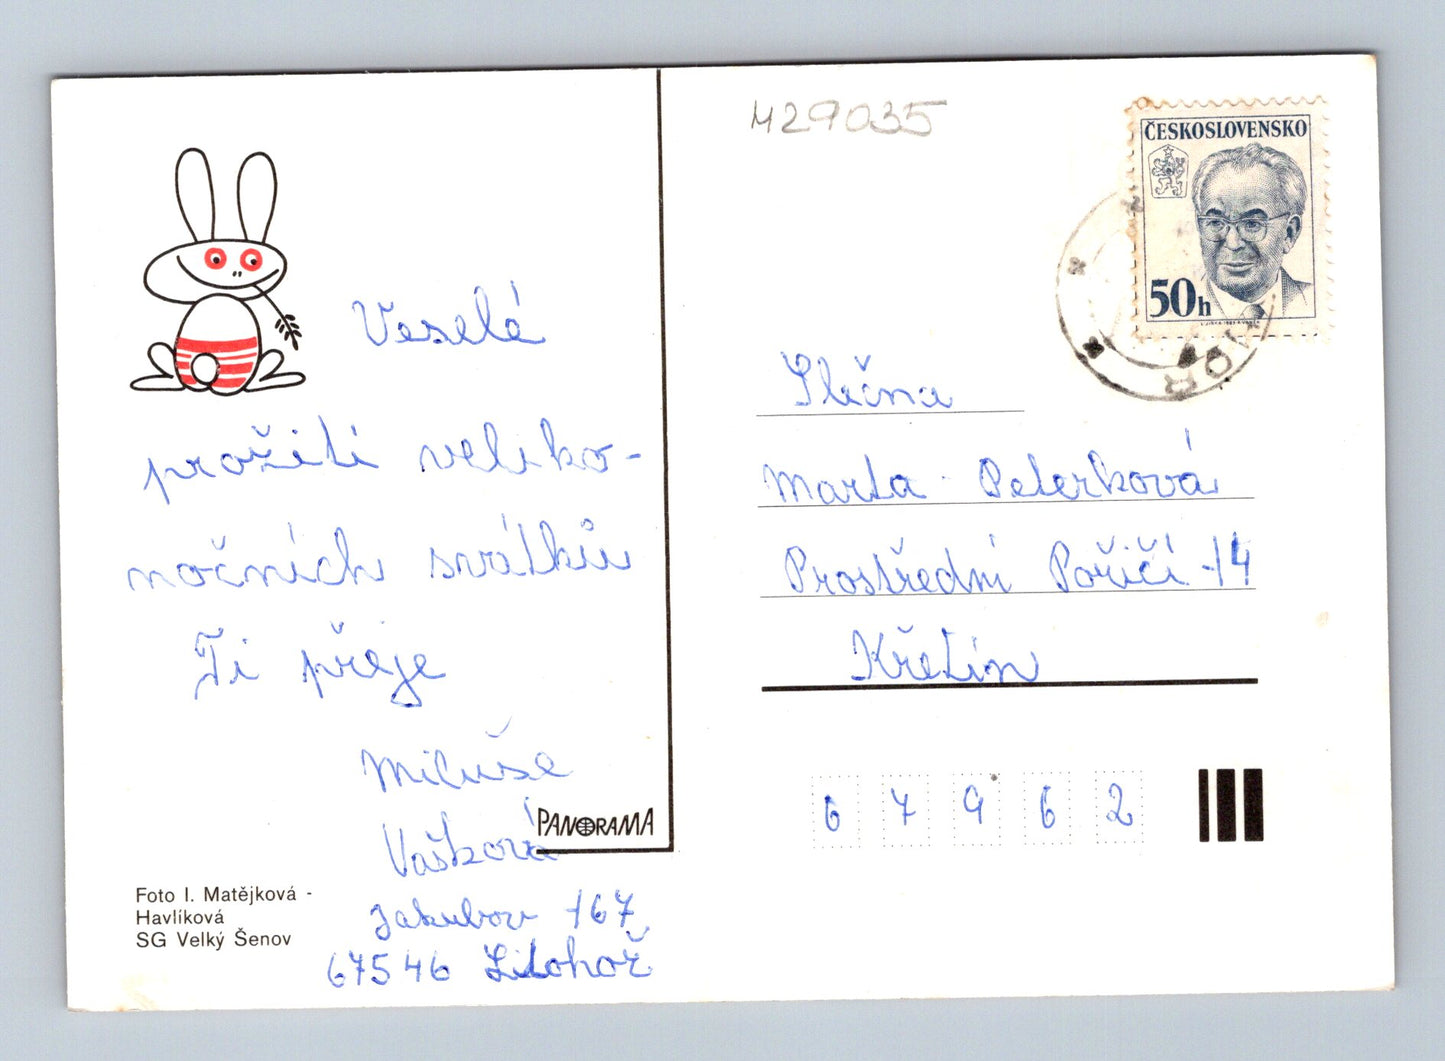 Veselé
prožití veliko-
nočních svátků
Ti přeje
Miluše
Vašková
Jakubov 167
67546 Litohoř
PANORAMA
Foto I. Matějková -
Havlíková
SG Velký Šenov
M29035
ČESKOSLOVENSKO
50h
Slečna
Marta Peterková
Prostřední Poříčí 14
Křetín
6 7 9 6 2